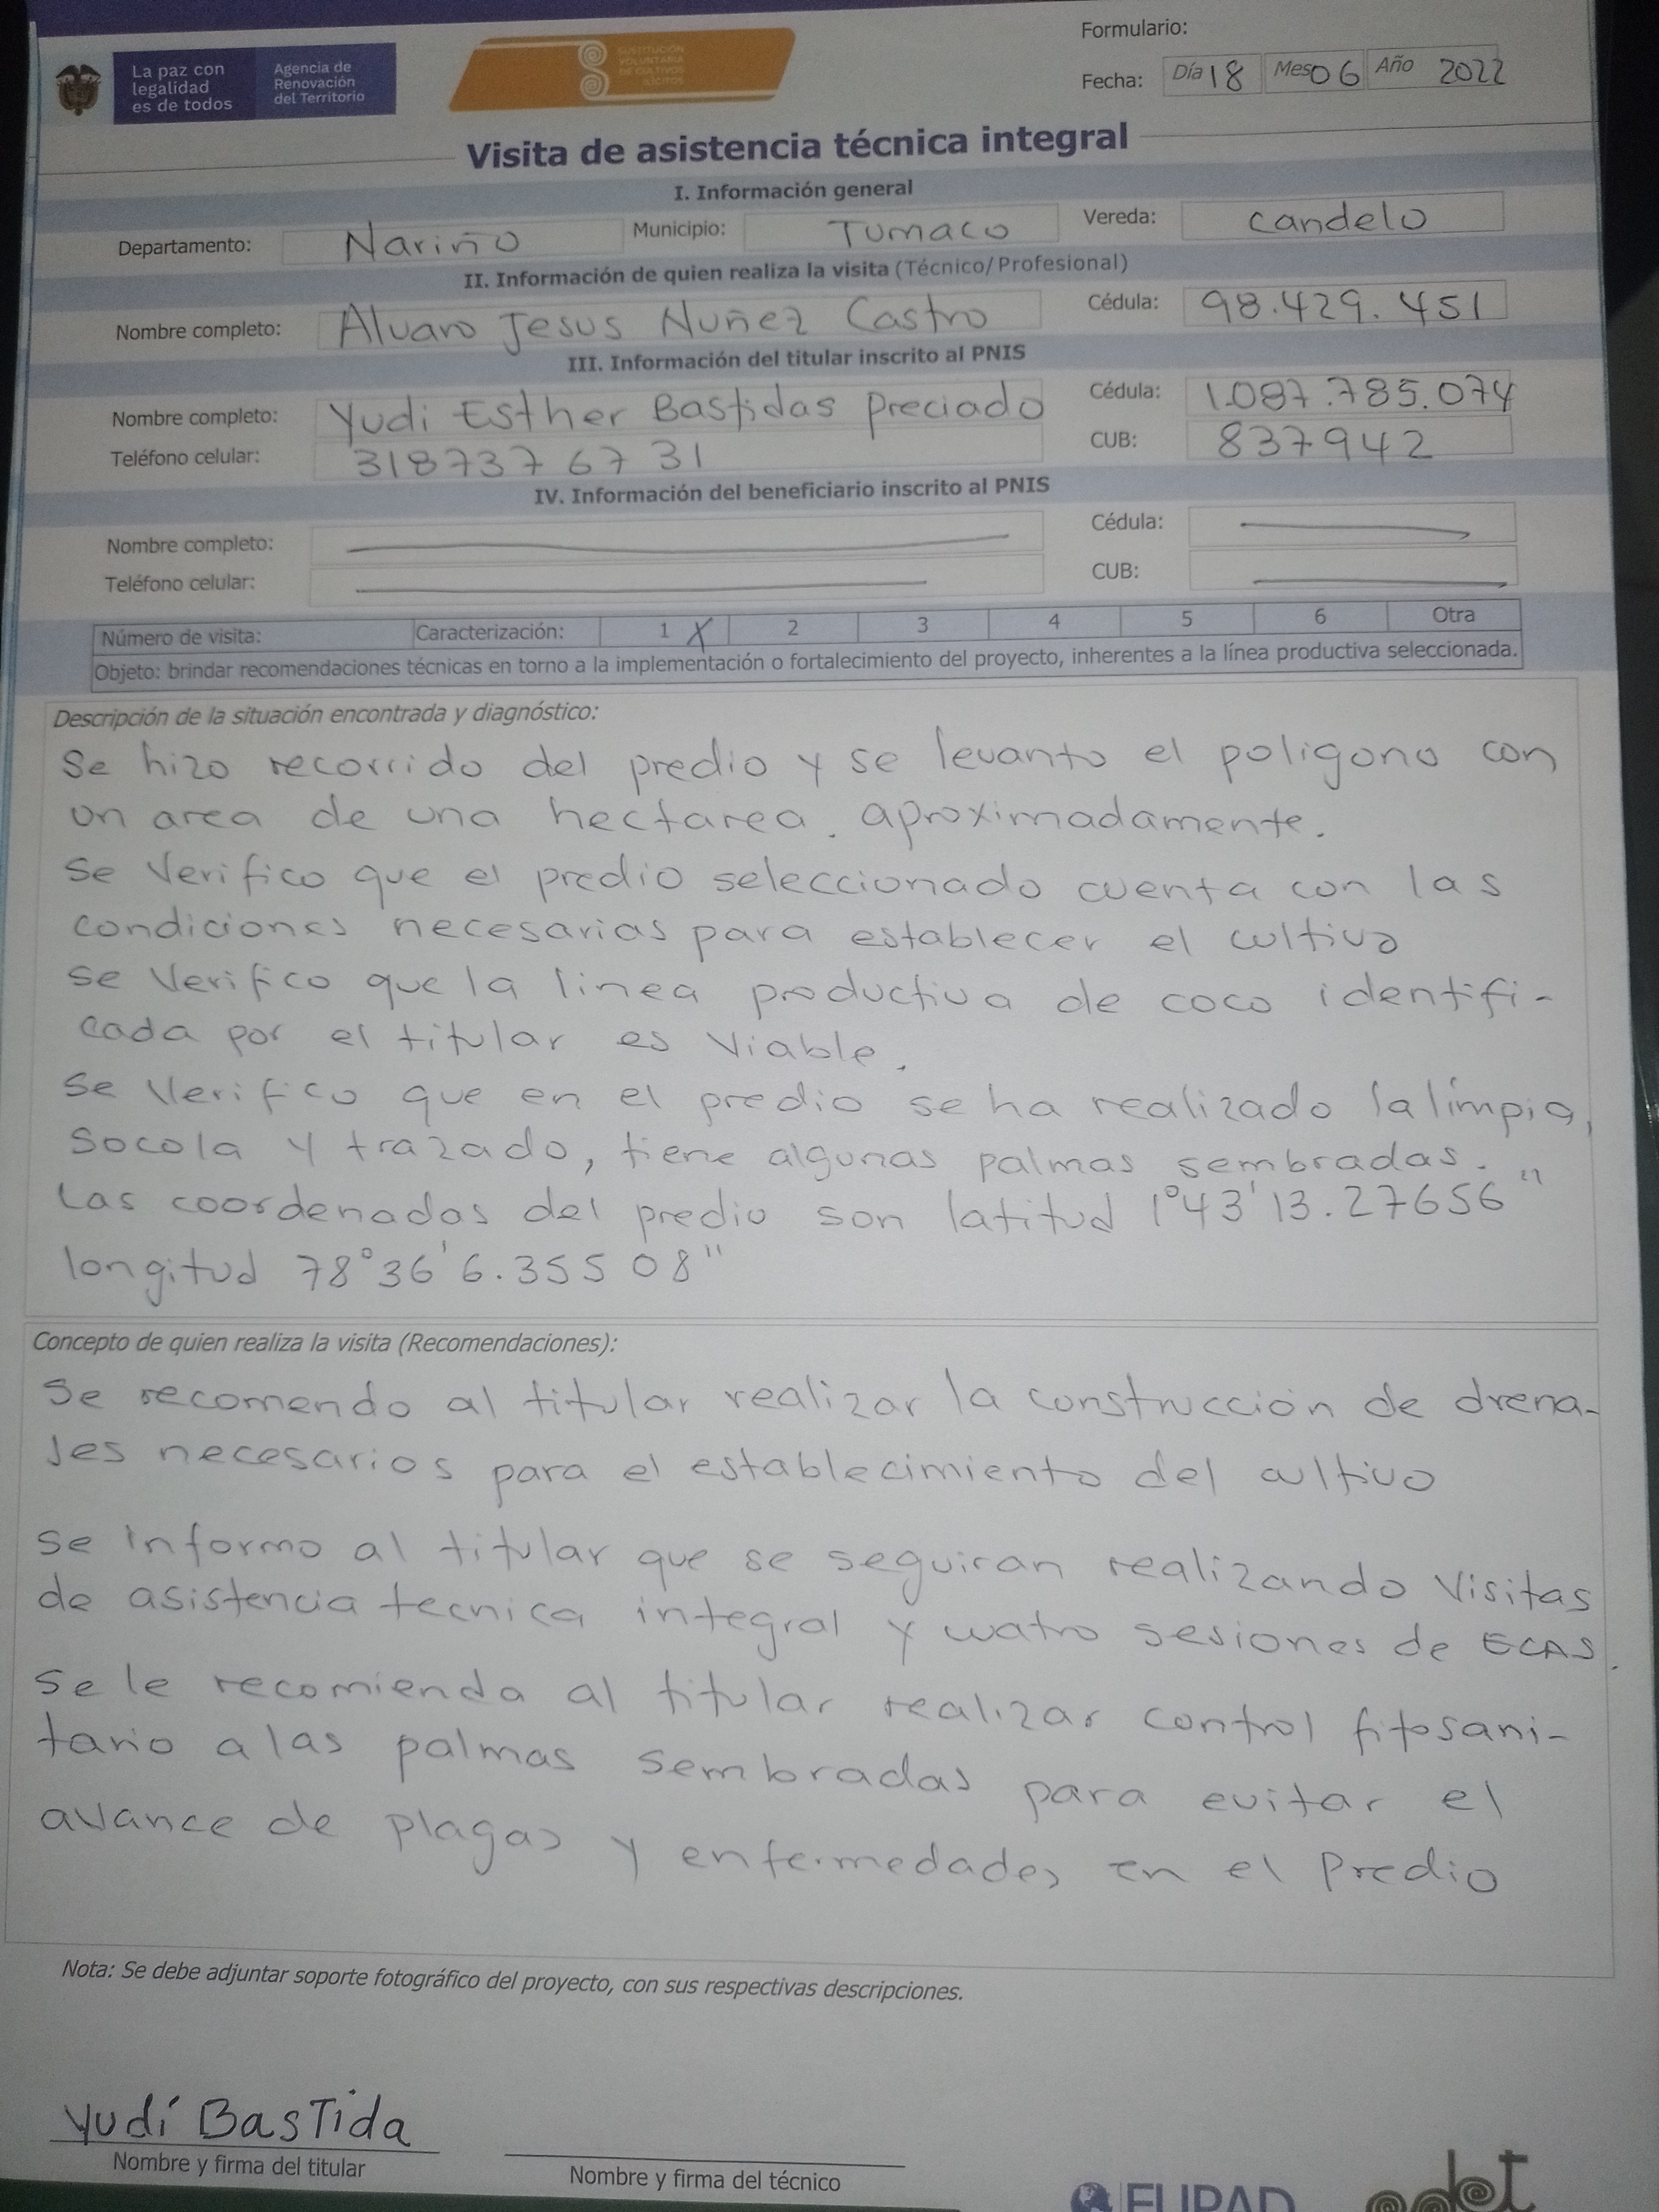 Formulario:
La paz con legalidad es de todos
Agencia de Renovación del Territorio
SUSTITUCIÓN VOLUNTARIA DE CULTIVOS ILÍCITOS
Fecha: Día 18 Mes 06 Año 2022
Visita de asistencia técnica integral
I. Información general
Departamento: Nariño Municipio: Tumaco Vereda: Candelo
II. Información de quien realiza la visita (Técnico/Profesional)
Nombre completo: Alvaro Jesus Nuñez Castro Cédula: 98.429.451
III. Información del titular inscrito al PNIS
Nombre completo: Yudi Esther Bastidas Preciado Cédula: 1.087.785.074
Teléfono celular: 318737 67 31 CUB: 837942
IV. Información del beneficiario inscrito al PNIS
Nombre completo: Cédula:
Teléfono celular: CUB:
Número de visita: Caracterización: 1 X 2 3 4 5 6 Otra
Objeto: brindar recomendaciones técnicas en torno a la implementación o fortalecimiento del proyecto, inherentes a la línea productiva seleccionada.
Descripción de la situación encontrada y diagnóstico:
Se hizo recorrido del predio y se levanto el poligono con
un area de una hectarea. aproximadamente.
Se Verifico que el predio seleccionado cuenta con las
condiciones necesarias para establecer el cultivo
Se Verifico que la linea productiva de coco identifi-
cada por el titular es Viable.
Se Verifico que en el predio se ha realizado la limpia,
Socola y trazado, tiene algunas palmas sembradas.
Las coordenadas del predio son latitud 1°43'13.27656"
longitud 78°36'6.35508"
Concepto de quien realiza la visita (Recomendaciones):
Se recomendo al titular realizar la construcción de drena-
Jes necesarios para el establecimiento del cultivo
Se informo al titular que se seguiran realizando Visitas
de asistencia tecnica integral y cuatro sesiones de ECAS.
Se le recomienda al titular realizar control fitosani-
tario a las palmas sembradas para evitar el
avance de plagas y enfermedades en el Predio
Nota: Se debe adjuntar soporte fotográfico del proyecto, con sus respectivas descripciones.
Yudí BasTida
Nombre y firma del titular
Nombre y firma del técnico